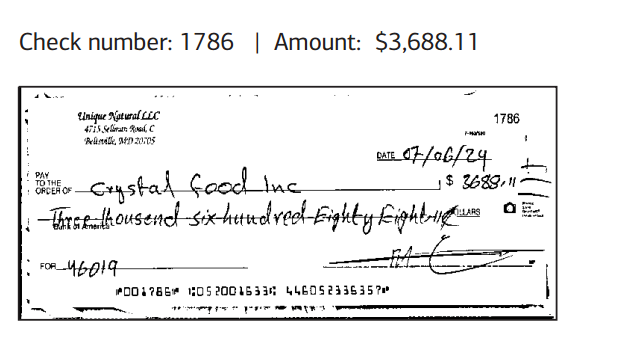 Check number: 1786 | Amount: $3,688.11
Unique Natural LLC
1786
4715 Sellman Road, C
Beltsville, MD 20705
DATE 07/06/24
PAY
TO THE
ORDER OF Crystal Food Inc $ 3688.11
Three thousend six hundred Eighty Eight 11/ DOLLARS
Bank of America
FOR 46019
⑈001786⑈ ⑆052001633⑆ 446052336357⑈